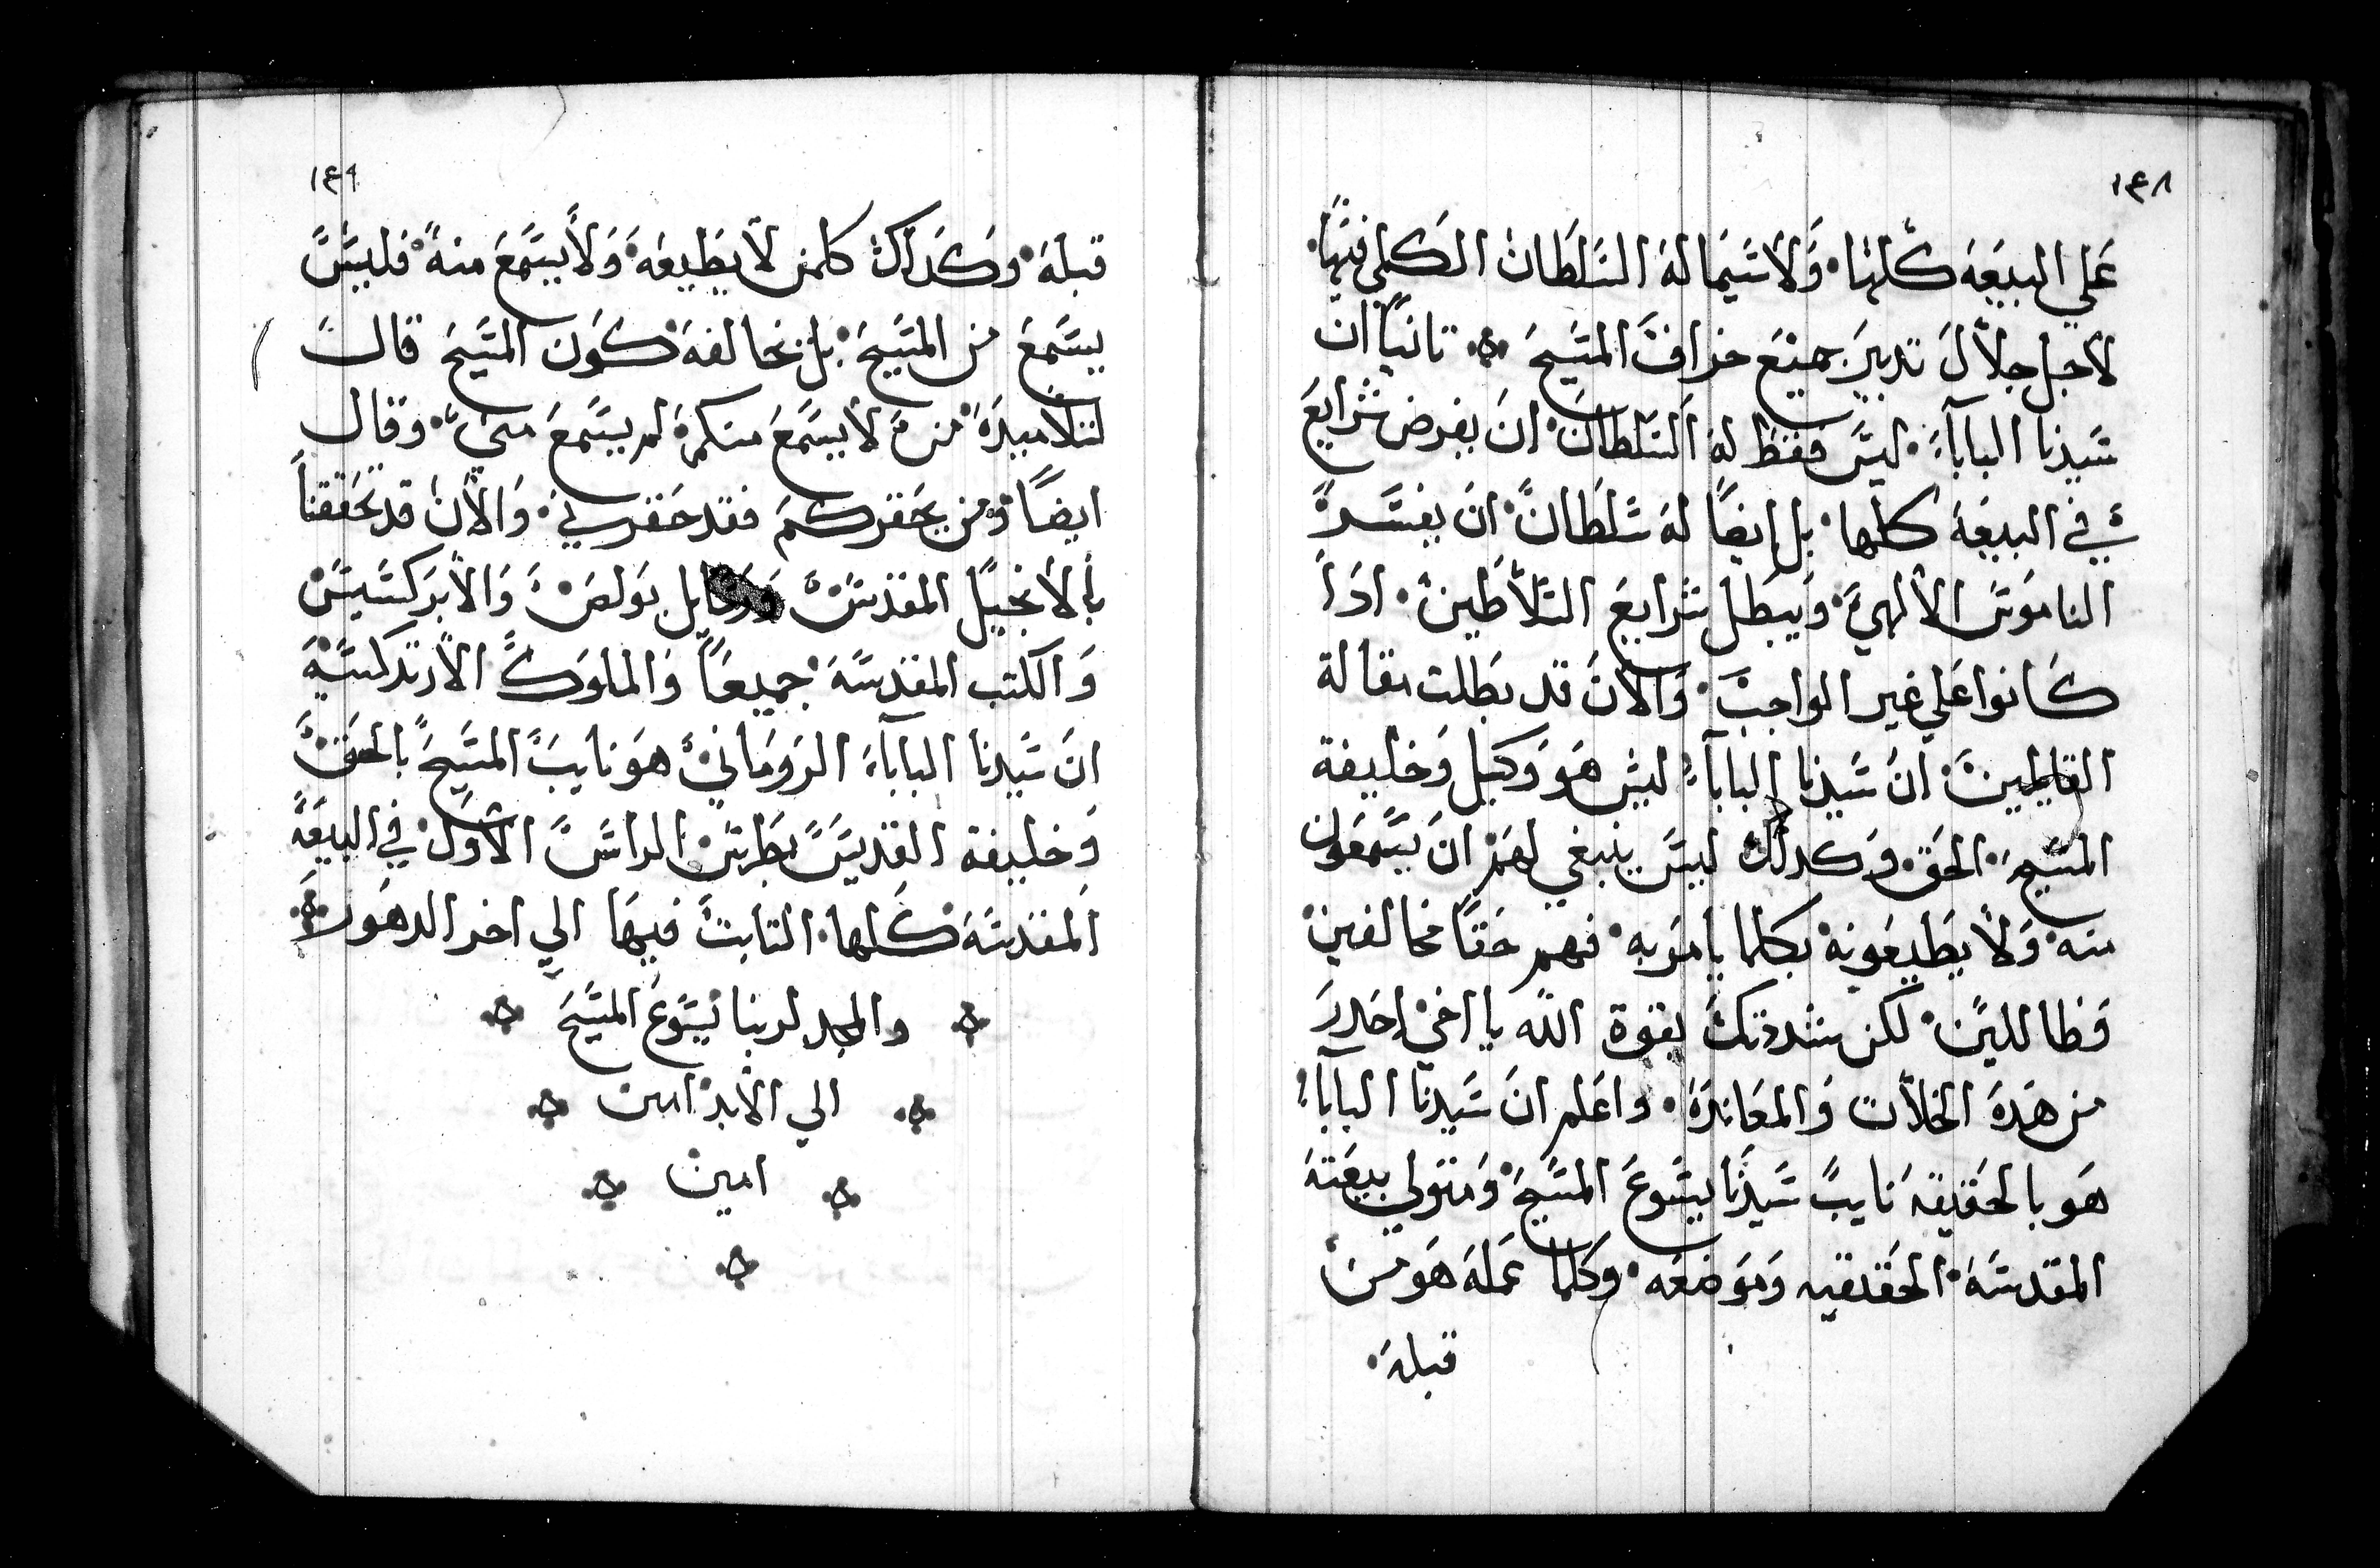 ١٤٨
علي البيعه كلها ولاسيما له السلطان الكلي فيها
لاجل جلال تدبير جميع خراف المسيح تانياً ان
سيدنا البابا ليس فقط له السلطان ان يفرض شرايع
في البيعه كلها بل ايضاً له سلطان ان يفسر
الناموس الالهي ويبطل شرايع السلاطين اداً
كانوا علي غير الواجب والان قد بطلت مقالة
القايلين ان سيدنا البابا ليس هو وكيل وخليفة
المسيح الحق وكدلك ليس ينبغي لهم ان يسمعون
منه ولا يطيعونه بكلما يامر به فهم حقاً مخالفين
وظاللين لكن شددتك بقوة الله يا اخي احدر
من هده الخلات والمعاندة واعلم ان سيدنا البابا
هو بالحقيقه نايب سيدنا يسوع المسيح ومتولي بيعته
المقدسه الحقيقيه وموضعه وكلما عمله هو من
قبله
١٤٩
قبله وكدلك كلمن لا يطيعه ولا يسمع منه فليس
يسمع من المسيح بل يخالفه كون المسيح قال
لتلاميده من لا يسمع منكم لم يسمع مني وقال
ايضاً ومن يحقركم فقد حقرني والان قد تحققنا
بالانجيل المقدس ورسايل بولص والابركسيس
والكتب المقدسه جميعاً والملوك الارتدكسيه
ان سيدنا البابا الروماني هو نايب المسيح بالحق
وخليفة القديس بطرس الراس الاول في البيعه
المقدسه كلها التابت فيها الي اخر الدهور
والمجد لربنا يسوع المسيح
الي الابد امين
امين